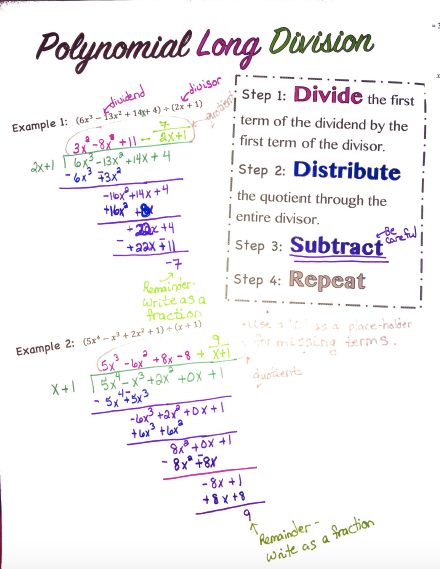 Polynomial Long Division
dividend
divisor
Example 1: (6x³ − 13x² + 14x + 4) ÷ (2x + 1)
quotient
3x² - 8x + 11 - 7/(2x+1)
2x+1 | 6x³ - 13x² + 14x + 4
- 6x³ + 3x²
-16x² + 14x + 4
+16x² + 8x
+ 22x + 4
- + 22x + 11
-7
Remainder-
Write as a
fraction
Step 1: Divide the first
term of the dividend by the
first term of the divisor.
Step 2: Distribute
the quotient through the
entire divisor.
Step 3: Subtract
Be
careful
Step 4: Repeat
Example 2: (5x⁴ − x³ + 2x² + 1) ÷ (x + 1)
as a place-holder
for missing terms.
quotients
5x³ - 6x² + 8x - 8 + 9/(x+1)
x+1 | 5x⁴ - x³ + 2x² + 0x + 1
- 5x⁴ + 5x³
-6x³ + 2x² + 0x + 1
+6x³ + 6x²
8x² + 0x + 1
- 8x² + 8x
-8x + 1
+8x + 8
9
Remainder -
Write as a fraction